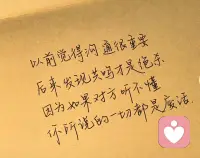 以前觉得沟通很重要
后来发现共鸣才是绝杀
因为如果对方听不懂
你所说的一切都是废话